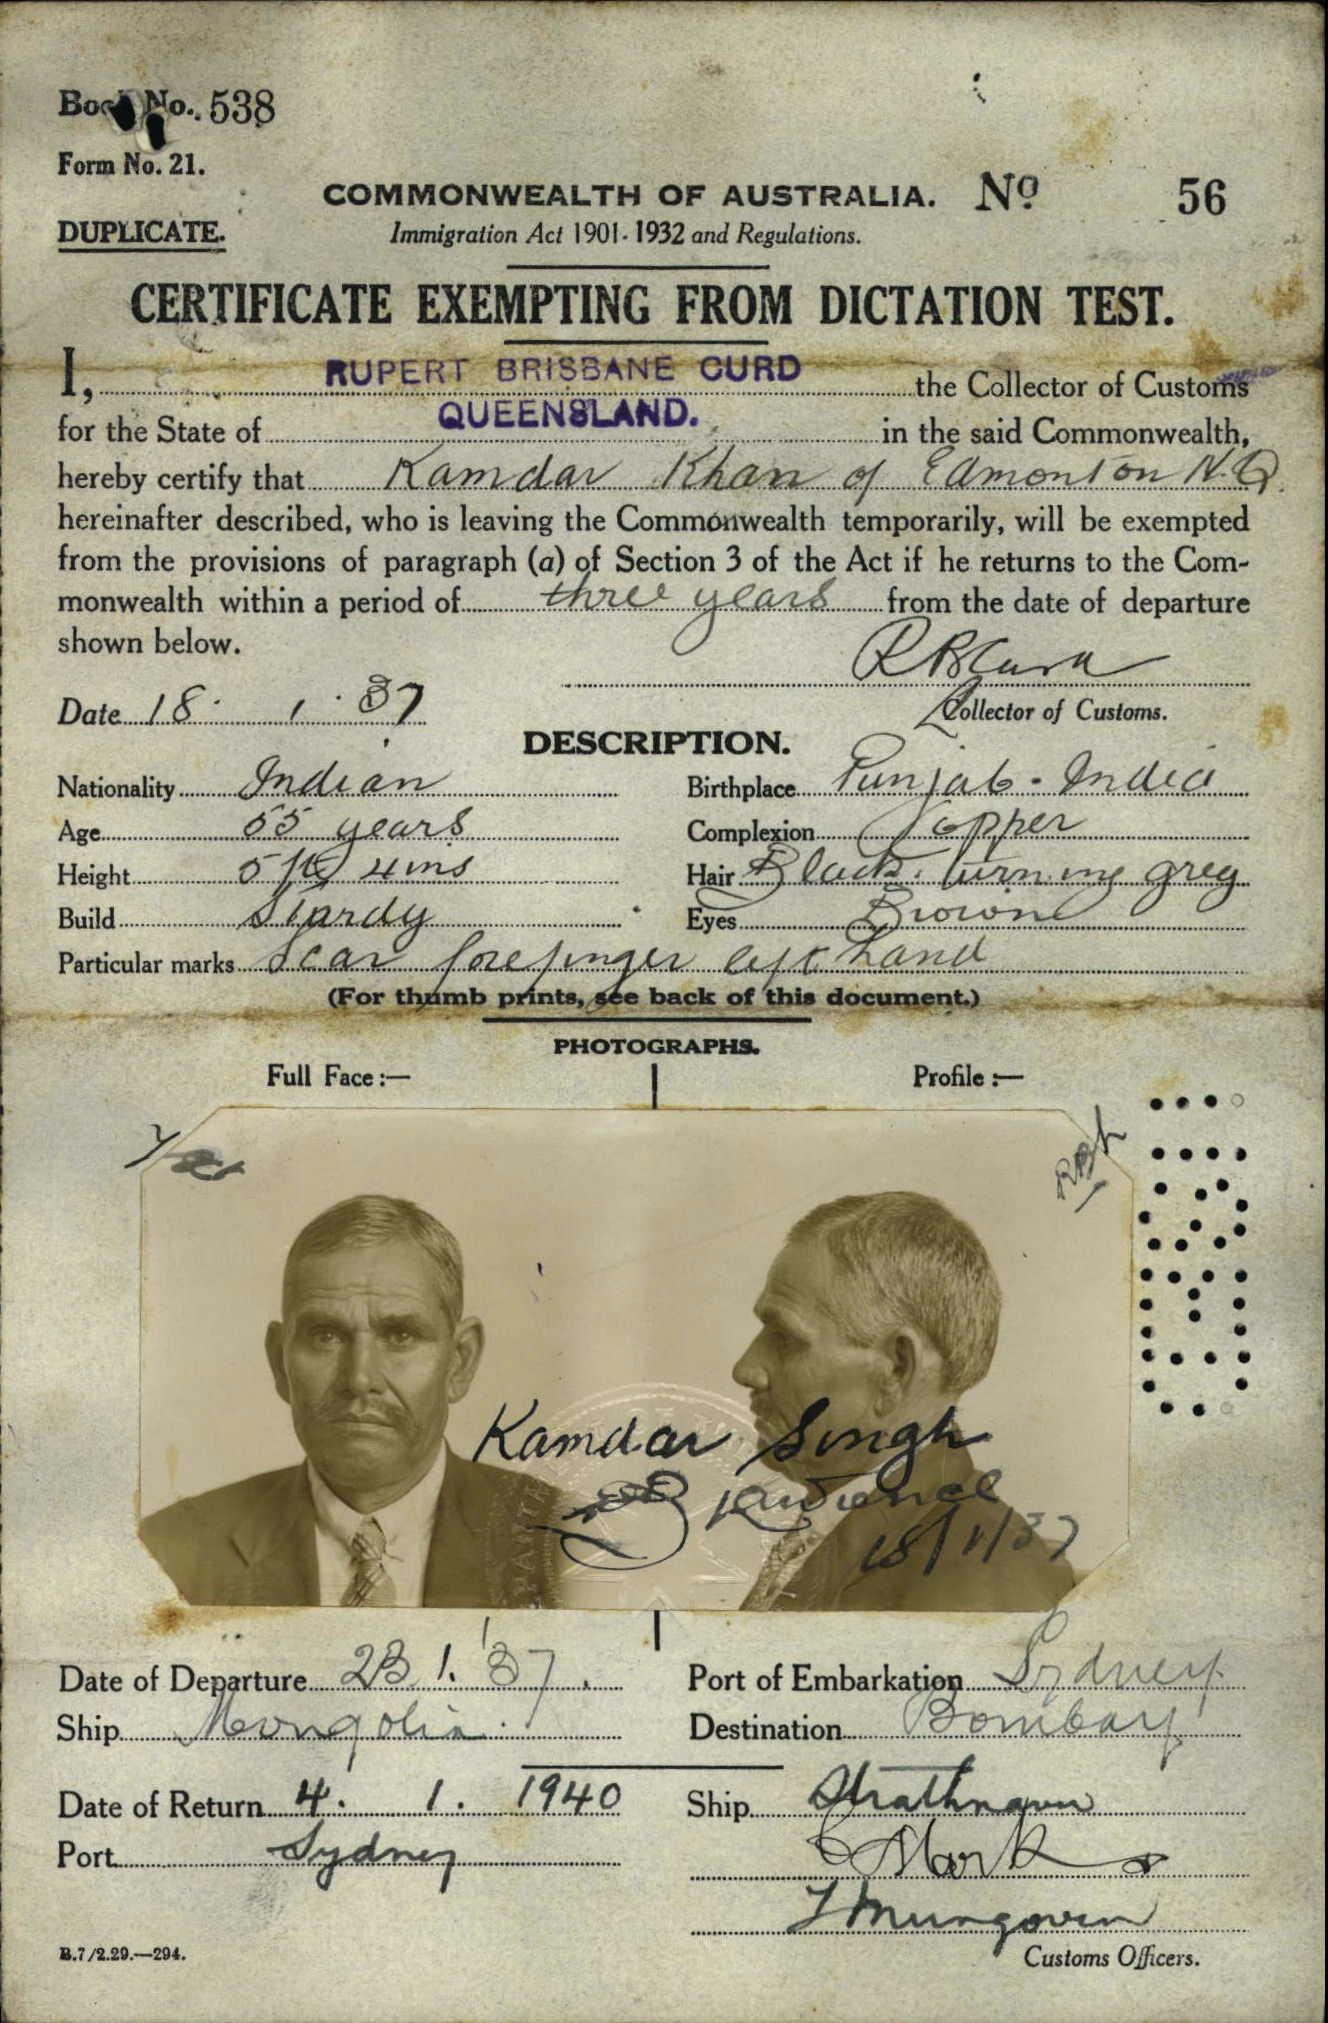 Book No. 538
Form No. 21.
DUPLICATE.
COMMONWEALTH OF AUSTRALIA. No 56
Immigration Act 1901-1932 and Regulations.
CERTIFICATE EXEMPTING FROM DICTATION TEST.
I, RUPERT BRISBANE CURD the Collector of Customs
for the State of QUEENSLAND. in the said Commonwealth,
hereby certify that Kamdar Khan of Edmonton N.Q.
hereinafter described, who is leaving the Commonwealth temporarily, will be exempted
from the provisions of paragraph (a) of Section 3 of the Act if he returns to the Com-
monwealth within a period of three years from the date of departure
shown below.
R B Curd
Date 18. 1. 37
Collector of Customs.
DESCRIPTION.
Nationality Indian Birthplace Punjab - India
Age 55 years Complexion Copper
Height 5 ft 4 ins Hair Black turning grey
Build Sturdy Eyes Brown
Particular marks Scar forefinger left hand
(For thumb prints, see back of this document.)
PHOTOGRAPHS.
Full Face :— Profile :—
Kamdar Singh
18/1/37
Date of Departure 23. 1. 37. Port of Embarkation Sydney
Ship Mongolia Destination Bombay
Date of Return 4. 1. 1940 Ship Strathnaver
Port Sydney
Customs Officers.
B.7/2.29.—294.